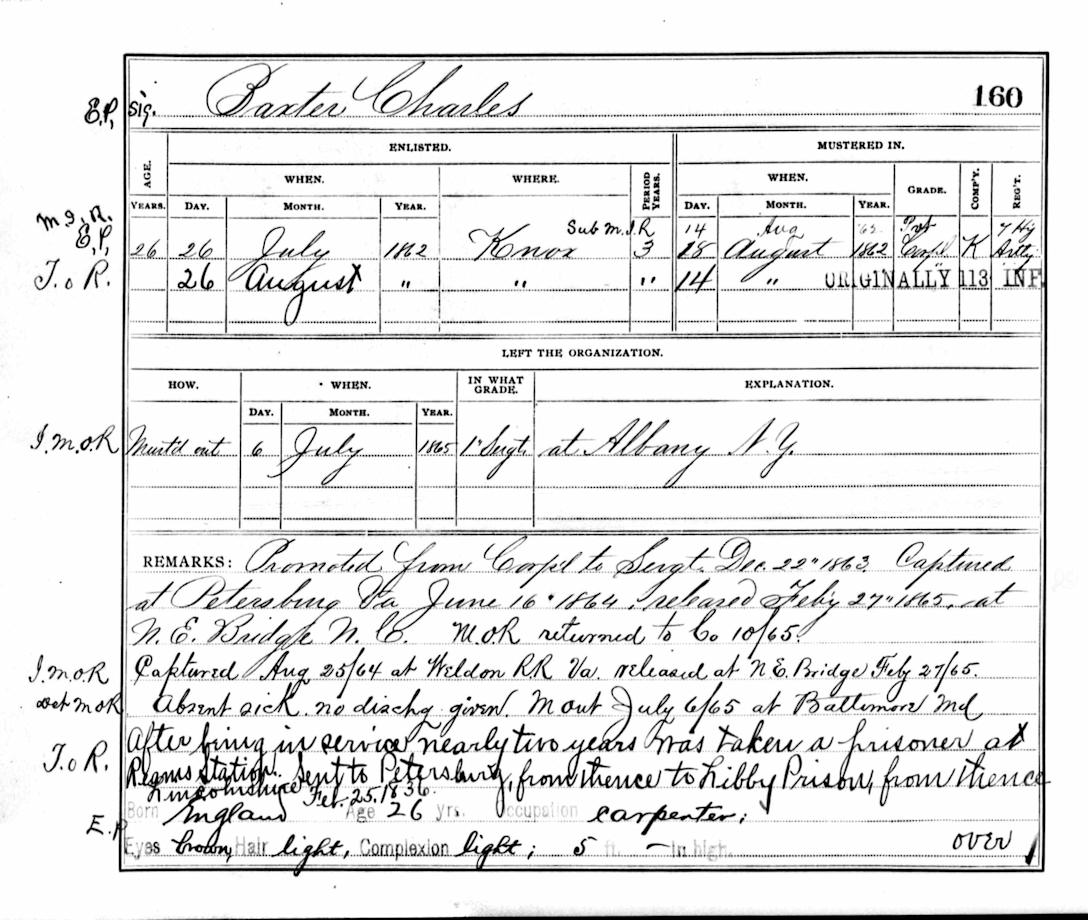 E.P. sig. Baxter Charles 160
ENLISTED. MUSTERED IN.
AGE. WHEN. WHERE. PERIOD YEARS. WHEN. GRADE. COMP'Y. REG'T.
YEARS. DAY. MONTH. YEAR. DAY. MONTH. YEAR.
M.I.R. Sub M.I.R 14 Aug '62 Pvt 7 Hy
E.P. 26 26 July 1862 Knox 3 18 August 1862 Corpl K Artty
T. o R. 26 August " " " 14 " ORIGINALLY 113 INF.
LEFT THE ORGANIZATION.
HOW. WHEN. IN WHAT GRADE. EXPLANATION.
DAY. MONTH. YEAR.
I.M.O.R Must'd out 6 July 1865 1" Sergt. at Albany N.Y.
REMARKS: Promoted from Corpl to Sergt. Dec. 22" 1863. Captured
at Petersburg Va June 16" 1864, released Feb'y 27" 1865, at
N.E. Bridge N.C. M.O.R returned to Co 10/65.
I.M.O.R Captured Aug 25/64 at Weldon R.R. Va. released at N.E. Bridge Feby 27/65.
det M.O.R Absent sick. no dischg given. M out July 6/65 at Baltimore Md
T. o R. After being in service nearly two years was taken a prisoner at
Reams station. Sent to Petersburg, from thence to Libby Prison, from thence
Lincolnshire Feb. 25, 1836.
E.P. Born England Age 26 yrs. Occupation carpenter;
Eyes brown, Hair light, Complexion light; 5 ft. — in high. over